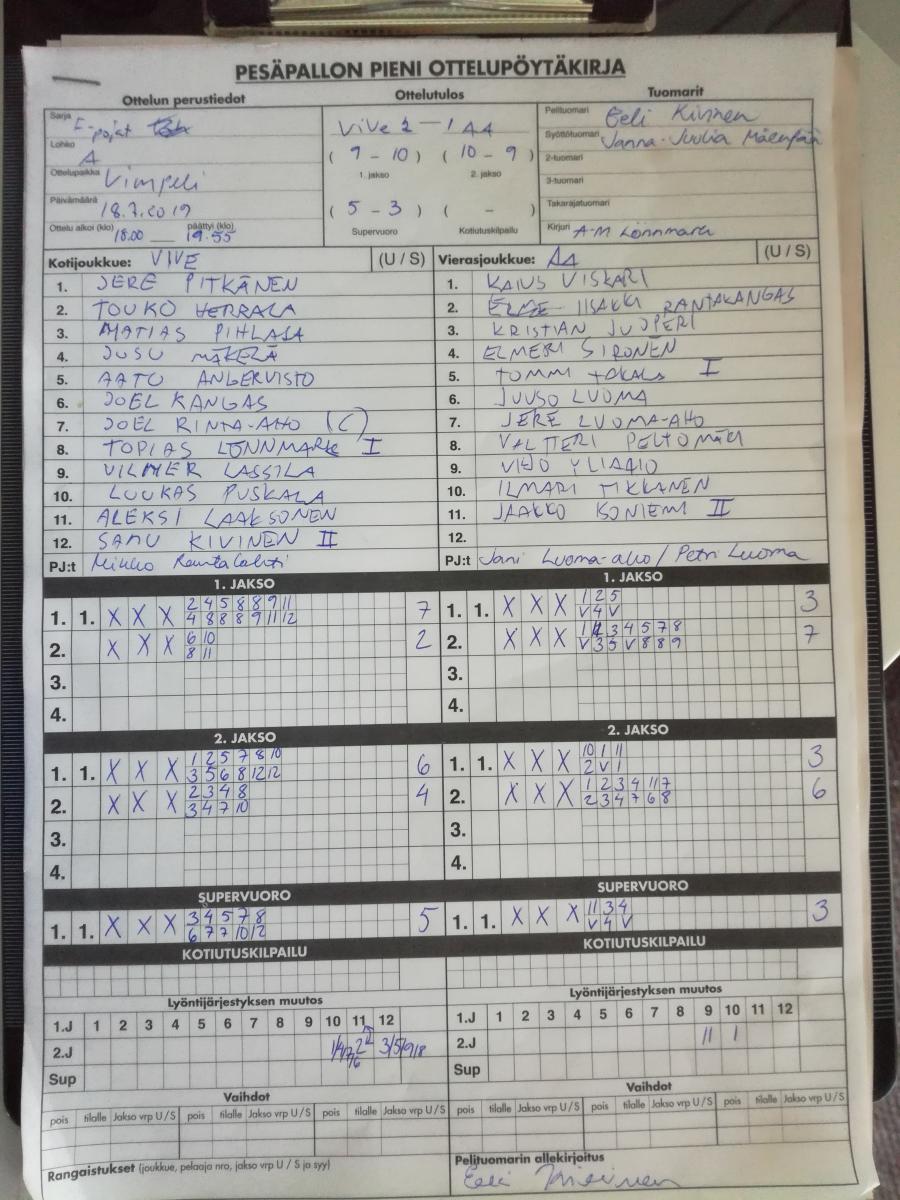 PESÄPALLON PIENI OTTELUPÖYTÄKIRJA
Ottelun perustiedot
Sarja E-pojat
Lohko A
Ottelupaikka Vimpeli
Päivämäärä 18.7.2019
Ottelu alkoi (klo) 18.00 päättyi (klo) 19.55
Ottelutulos
ViVe 2 - 1 AA
( 9 - 10 ) ( 10 - 9 )
1. jakso 2. jakso
( 5 - 3 ) ( - )
Supervuoro Kotiutuskilpailu
Tuomarit
Pelituomari Eeli Kivinen
Syöttötuomari Janna-Juulia Mäenpää
2-tuomari
3-tuomari
Takarajatuomari
Kirjuri A-M Lönnmark
Kotijoukkue: VIVE (U / S)
1. JERE PITKÄNEN
2. TOUKO HERRALA
3. MATIAS PIHLAJA
4. JUSU MÄKELÄ
5. AATU ANGERVISTO
6. JOEL KANGAS
7. JOEL RINTA-AHO (C)
8. TOPIAS LÖNNMARK I
9. VILMER LASSILA
10. LUUKAS PUSKALA
11. ALEKSI LAAKSONEN
12. SAMU KIVINEN II
PJ:t Mikko Rantalahti
Vierasjoukkue: AA (U / S)
1. KAIUS VISKARI
2. IISAKKI RANTAKANGAS
3. KRISTIAN JUOPERI
4. ELMERI SIRONEN
5. TOMMI I
6. JUUSO LUOMA
7. JERE LUOMA-AHO
8. VALTTERI PELTOMÄKI
9. YLIAHO
10. ILMARI TIKKANEN
11. JAAKKO KONIEMI II
12.
PJ:t Jani Luoma-aho / Petri Luoma
1. JAKSO
1. 1. X X X 2 4 5 8 8 9 11 7
4 8 8 8 9 11 12
2. X X X 6 10 2
8 11
3.
4.
1. JAKSO
1. 1. X X X 1 2 5 3
V 4 V
2. X X X 1 2 3 4 5 7 8 7
V 3 5 V 8 8 9
3.
4.
2. JAKSO
1. 1. X X X 1 2 5 7 8 10 6
3 5 6 8 12 12
2. X X X 2 3 4 8 4
3 4 7 10
3.
4.
2. JAKSO
1. 1. X X X 10 1 11 3
2 V 1
2. X X X 1 2 3 4 11 7 6
2 3 4 7 6 8
3.
4.
SUPERVUORO
1. 1. X X X 3 4 5 7 8 5
6 7 7 10 12
SUPERVUORO
1. 1. X X X 11 3 4 3
V 4 V
KOTIUTUSKILPAILU
KOTIUTUSKILPAILU
Lyöntijärjestyksen muutos
1.J 1 2 3 4 5 6 7 8 9 10 11 12
2.J
Sup
Lyöntijärjestyksen muutos
1.J 1 2 3 4 5 6 7 8 9 10 11 12
2.J 11 1
Sup
Vaihdot
pois tilalle Jakso vrp U / S pois tilalle Jakso vrp U / S pois tilalle Jakso vrp U / S
Vaihdot
pois tilalle Jakso vrp U / S pois tilalle Jakso vrp U / S pois tilalle Jakso vrp U / S
Rangaistukset (joukkue, pelaaja nro, jakso vrp U / S ja syy)
Pelituomarin allekirjoitus
Eeli Kivinen